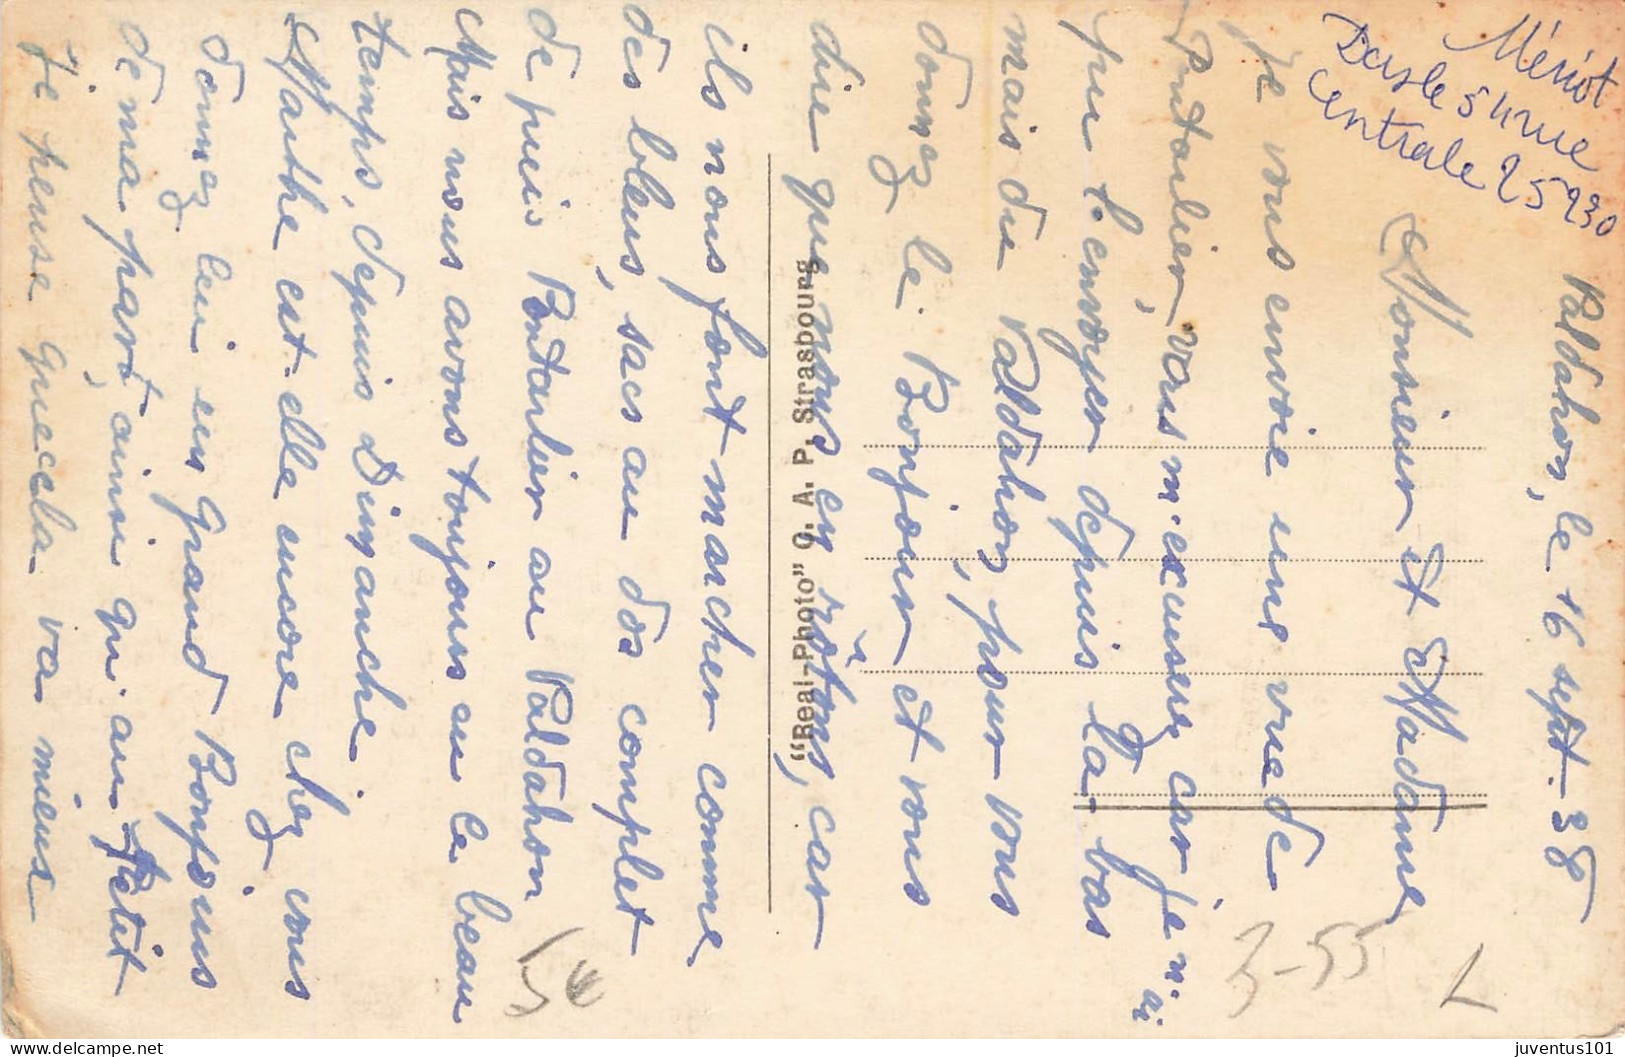 Valdahon, le 16 sept. 38
Monsieur et Madame
Je vous envoie une vue de
Pontarlier, vous m'excuserez car je n'ai
pu l'envoyer depuis la bas
mais du Valdahon, pour vous
donnez le Bonjour et vous
dire que nous en rôtons, car
ils nous font marcher comme
des bleus, sacs au dos complet
depuis Pontarlier au Valdahon
Mais nous avons toujours eu le beau
temps, depuis Dimanche.
Marthe est-elle encore chez vous
donnez lui un Grand Bonjours
de ma part, ainsi qu'au Petit
Je pense que cela va mieux
Méniot
5 rue
Centrale 25230
"Real-Photo" C. A. P. Strasbourg
3-55
L
juventus101